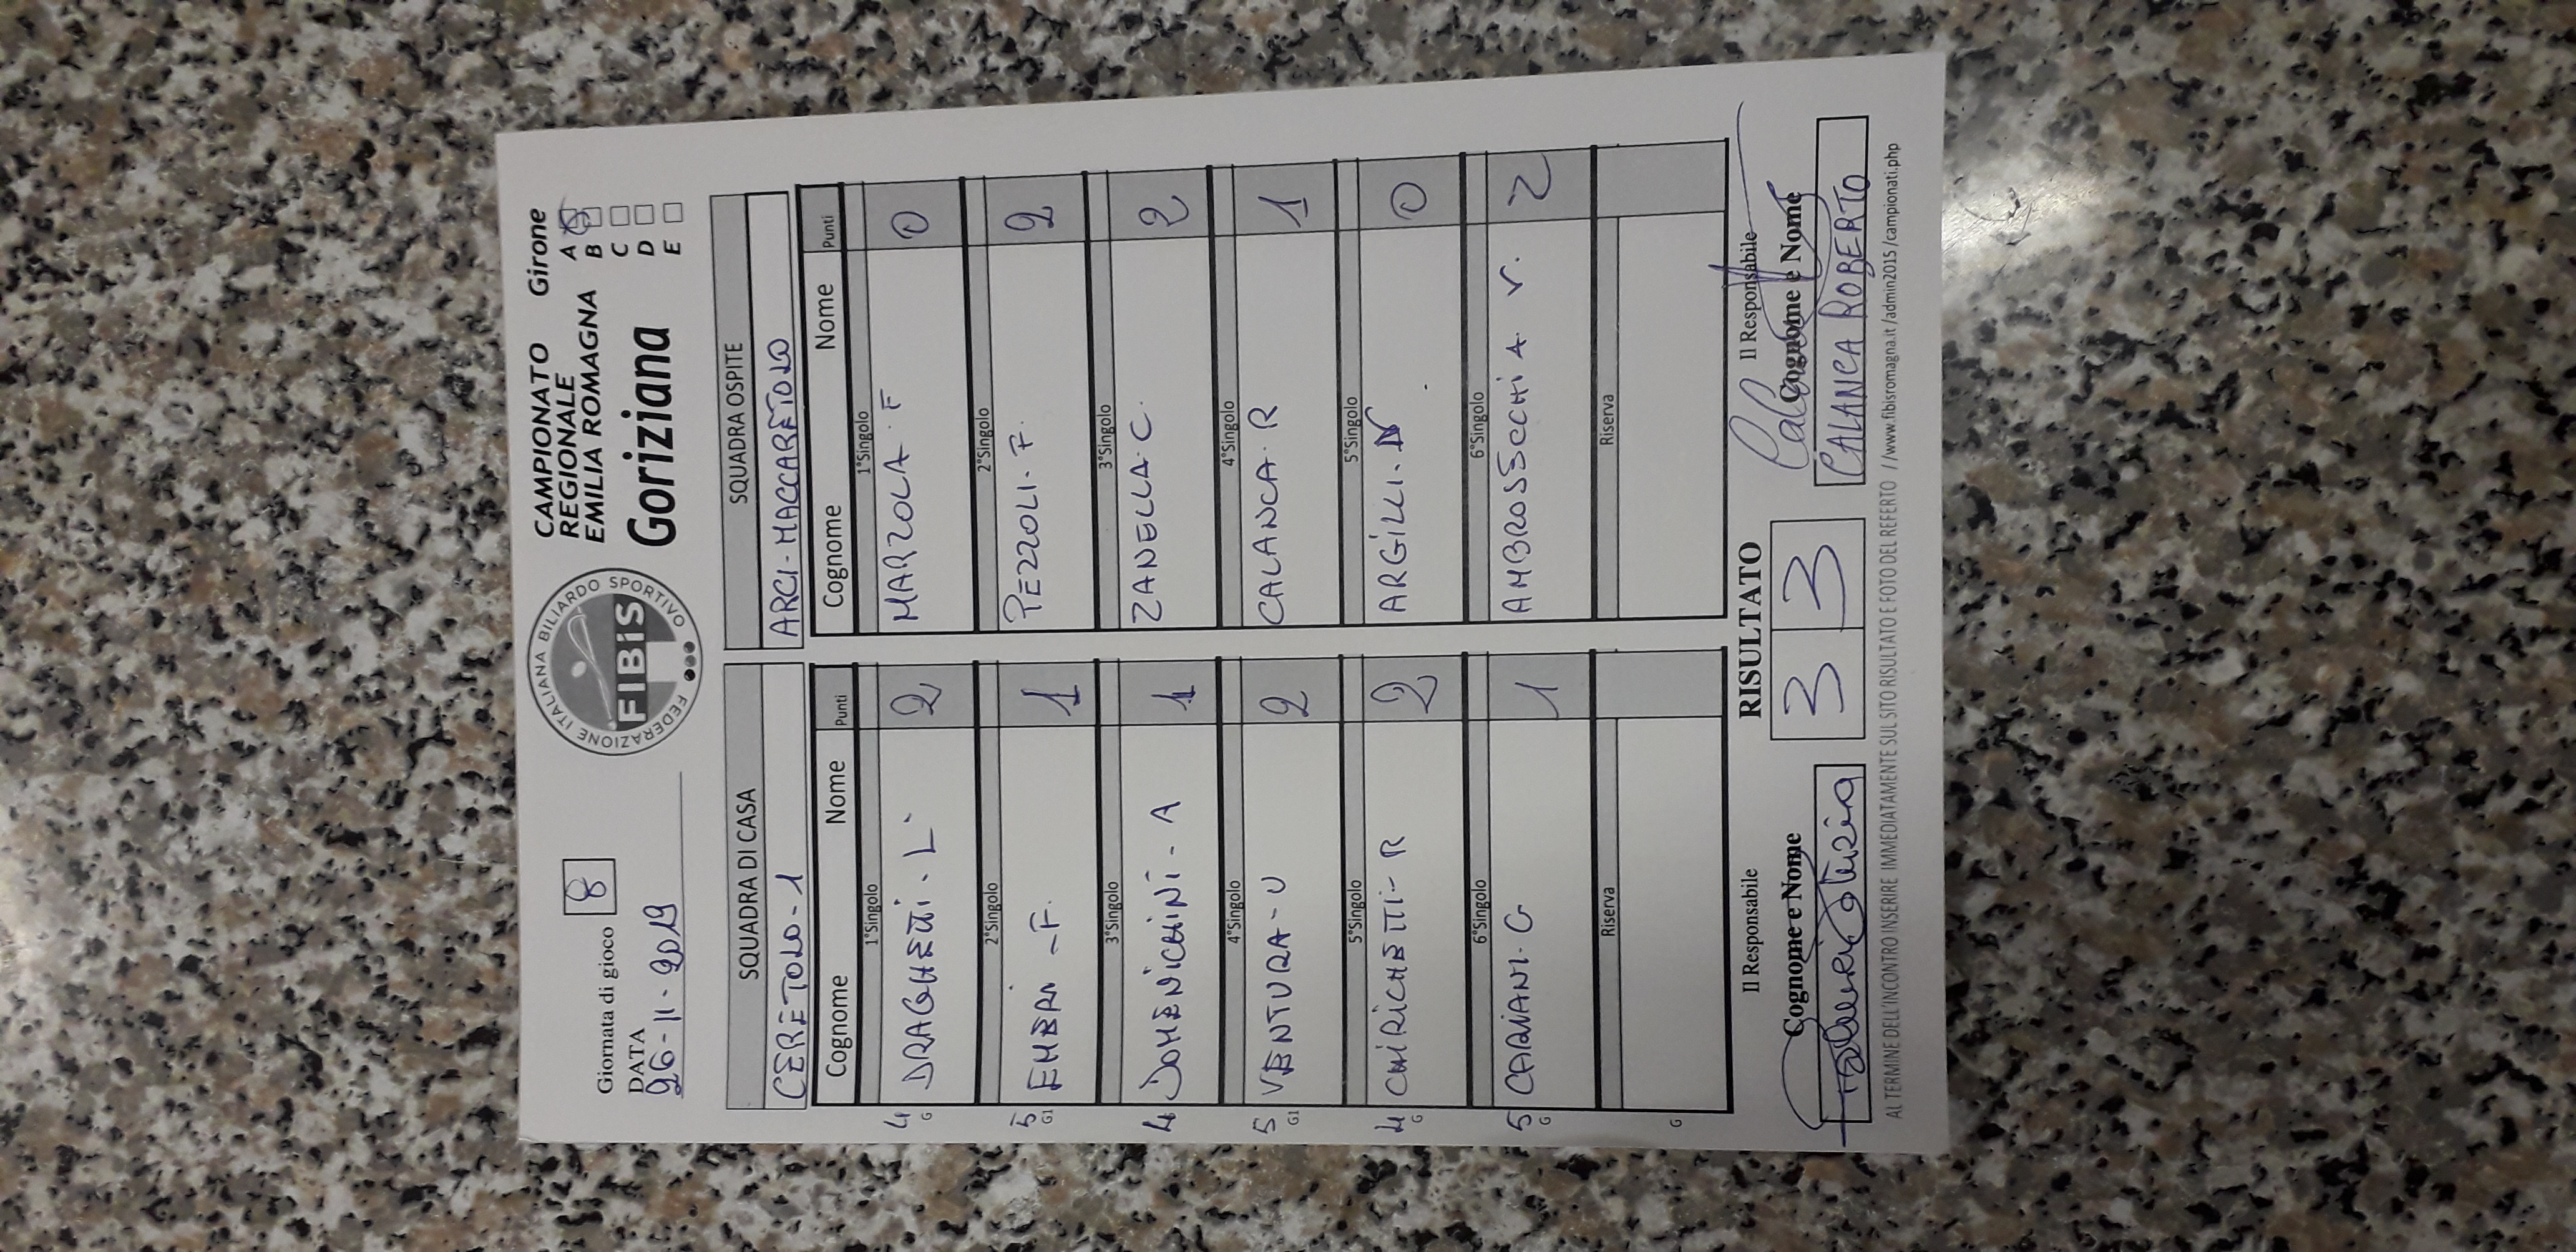 Giornata di gioco 8
DATA
26-11-2019
FEDERAZIONE ITALIANA BILIARDO SPORTIVO
FIBiS
CAMPIONATO
REGIONALE
EMILIA ROMAGNA
Goriziana
Girone
A
B
C
D
E
SQUADRA DI CASA
CERETOLO-1
Cognome Nome Punti
1°Singolo
4 G DRAGHETTI.L 2
2°Singolo
5 G1 EMERI-F. 1
3°Singolo
4 DOMENICHINI-A 1
4°Singolo
5 G1 VENTURA-U 2
5°Singolo
4 G CHIRICHETTI-R 2
6°Singolo
5 G CARIANI.G 1
Riserva
G
SQUADRA OSPITE
ARCI-MACCARETOLO
Cognome Nome Punti
1°Singolo
MARZOLA.F 0
2°Singolo
PEZZOLI.F. 2
3°Singolo
ZANELLA.C. 2
4°Singolo
CALANCA.R 1
5°Singolo
ARGILLI.N 0
6°Singolo
AMBROSECCHIA V. 2
Riserva
Il Responsabile
Cognome e Nome
RISULTATO
3 3
Il Responsabile
Cognome e Nome
CALANCA ROBERTO
AL TERMINE DELL'INCONTRO INSERIRE IMMEDIATAMENTE SUL SITO RISULTATO E FOTO DEL REFERTO //www.fibisromagna.it/admin2015/campionati.php